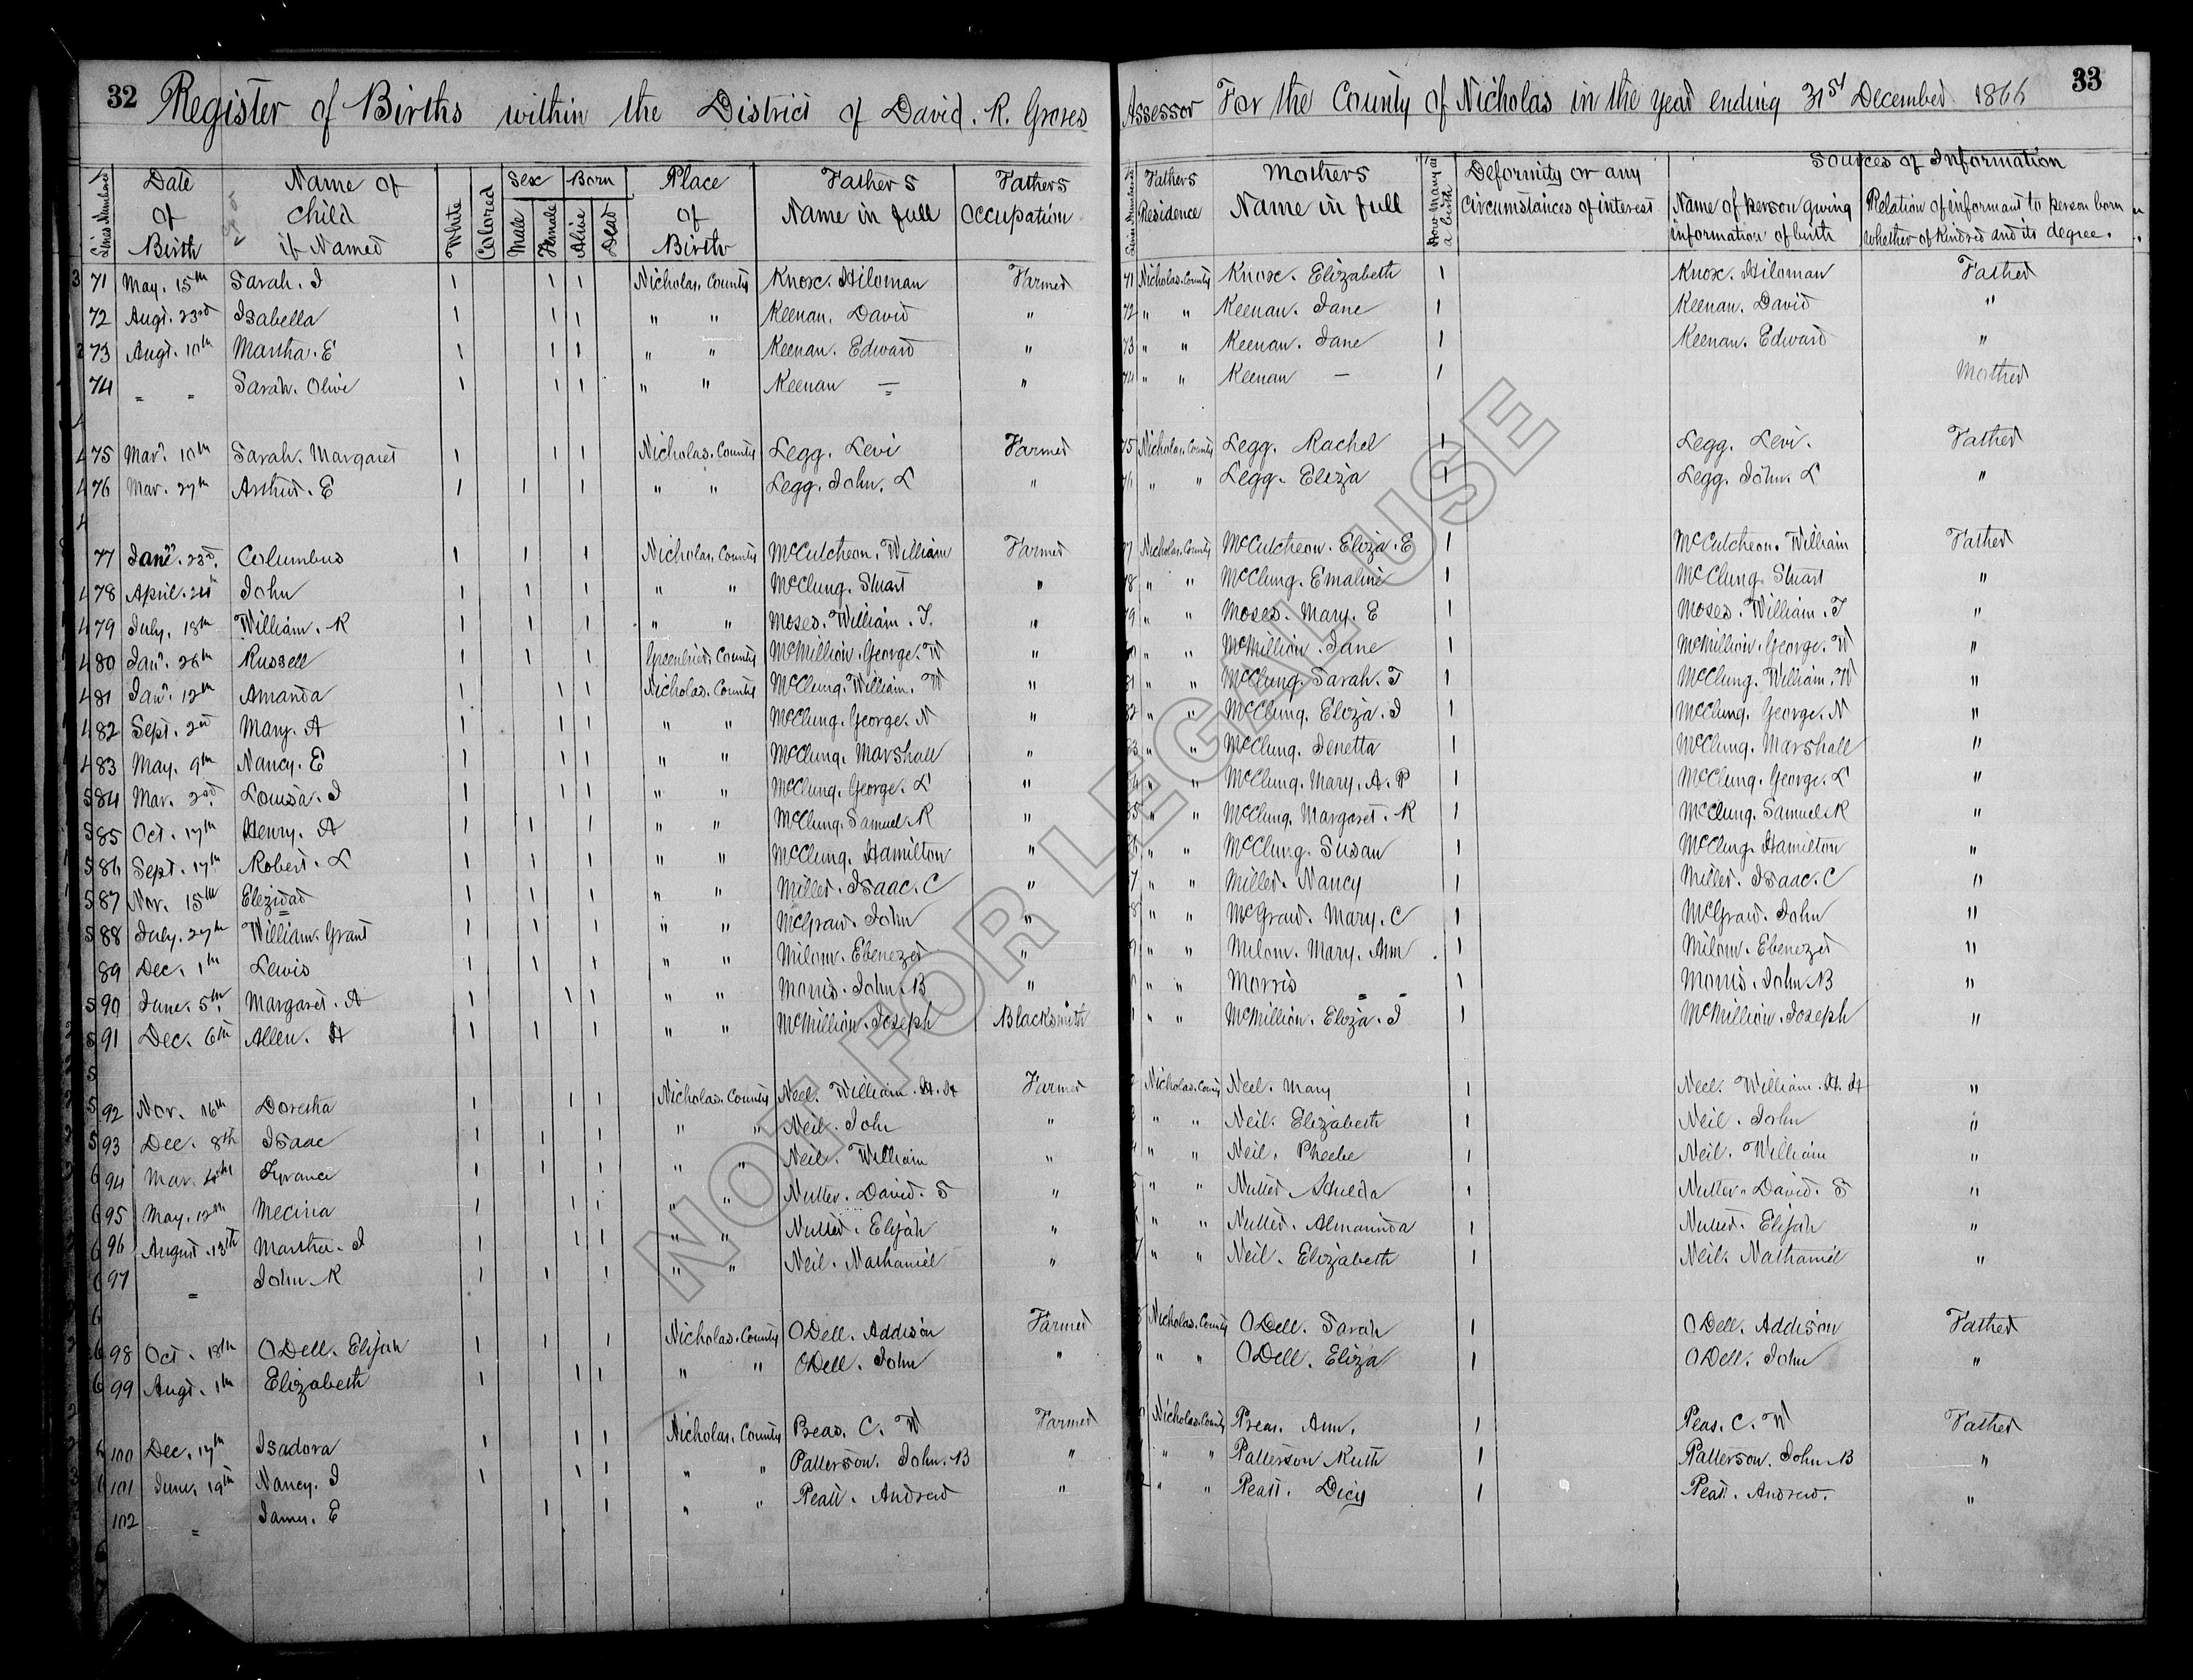 32 Register of Births within the District of David. R. Groses
Assessor For the County of Nicholas in the year ending 31st December 1866 33
Lines Numbered | Date of Birth | Name of Child if Named | White | Colored | Sex Male Female | Born Alive Dead | Place of Birth | Fathers Name in full | Fathers Occupation | Fathers Residence | Mothers Name in full | How Many at a birth | Deformity or any Circumstances of interest | Sources of Information | Name of person giving information of birth | Relation of informant to person born whether of Kindred and its degree.
71 May. 15th Sarah. J 1 1 1 Nicholas. County Knox. Hiloman Farmer 71 Nicholas. County Knox. Elizabeth 1 Knox. Hiloman Father
72 Augt. 23rd Isabella 1 1 1 " " Keenan. David " 72 " " Keenan. Jane 1 Keenan. David "
73 Augt. 10th Martha. E 1 1 1 " " Keenan. Edward " 73 " " Keenan. Jane 1 Keenan. Edward "
74 " " Sarah. Olive 1 1 1 " " Keenan — " 74 " " Keenan — 1 Mother
75 Mar. 10th Sarah. Margaret 1 1 1 Nicholas. County Legg. Levi Farmer 75 Nicholas. County Legg. Rachel 1 Legg. Levi. Father
76 Mar. 27th Arthur. E 1 1 1 " " Legg. John. L " 76 " " Legg. Eliza 1 Legg. John. L "
77 Jany. 23rd. Columbus 1 1 1 Nicholas. County McCutcheon. William Farmer Nicholas. County McCutcheon. Eliza. E 1 McCutcheon. William Father
78 April. John 1 1 1 " " McClung. Stuart " " " McClung. Emaline 1 McClung. Stuart "
79 July. 18th William. K 1 1 1 " " Moses. William. T. " " " Moses. Mary. E 1 Moses. William. T "
80 Jany. 26th Russell 1 1 1 Greenbrier. County McMillion. George. W " " " McMillion. Jane 1 McMillion. George. W "
81 Jany. 12th Amanda 1 1 1 Nicholas. County McClung. William. W " " " McClung. Sarah. T 1 McClung. William. W "
82 Sept. 2nd Mary. A 1 1 1 " " McClung. George. N " " " McClung. Eliza. J 1 McClung. George. N "
83 May. 9th Nancy. E 1 1 1 " " McClung. Marshall " " " McClung. Jenetta 1 McClung. Marshall "
84 Mar. 2nd. Louisa. J 1 1 1 " " McClung. George. L " " " McClung. Mary. A. P 1 McClung. George. L "
85 Oct. 17th Henry. A 1 1 1 " " McClung. Samuel. K " " " McClung. Margaret. K 1 McClung. Samuel K "
86 Sept. 17th. Robert. L 1 1 1 " " McClung. Hamilton " " " McClung. Susan 1 McClung Hamilton "
87 Nov. 15th Elezidad 1 1 1 " " Miller. Isaac. C " " " Miller. Nancy 1 Miller. Isaac. C "
88 July. 27th William. Grant 1 1 1 " " McGraw. John " " " McGraw. Mary. C 1 McGraw. John "
89 Dec. 1th Lewis 1 1 1 " " Milam. Ebenezer " " " Milam. Mary. Ann 1 Milam. Ebenezer "
90 June. 5th. Margaret. A 1 1 1 " " Morris. John. B " " " Morris " " 1 Morris. John. B "
91 Dec. 6th Allen. H 1 1 1 " " McMillion. Joseph Blacksmith " " McMillion. Eliza. J 1 McMillion. Joseph "
92 Nov. 16th Doretha 1 1 1 Nicholas. County Neel. William. H. H Farmer Nicholas. County Neel. Mary 1 Neel. William. H. H "
93 Dec. 8th Isaac 1 1 1 " " Neil. John " " " Neil. Elizabeth 1 Neil. John "
94 Mar. 1 1 1 " " Neil. William " " " Neil. Phebe 1 Neil. William "
95 May. 12th Mecina 1 1 1 " " Nutter. David. S " " " Nutter Hulda 1 Nutter. David. S "
96 August. 13th Martha. J 1 1 1 " " Nutter. Elijah " " " Nutter. Almarinda 1 Nutter. Elijah "
97 " John. K 1 1 1 " " Neil. Nathaniel " " " Neil. Elizabeth 1 Neil. Nathaniel "
98 Oct. 18th ODell. Elijah 1 1 1 Nicholas. County ODell. Addison Farmer Nicholas. County ODell. Sarah 1 ODell. Addison Father
99 Augt. 1th Elizabeth 1 1 1 " " ODell. John " " " ODell. Eliza 1 ODell. John "
100 Dec. 17th Isadora 1 1 1 Nicholas. County C. W Farmer Nicholas. County Ann. 1 C. W Father
101 June. 19th Nancy. J 1 1 1 " " Patterson. John. B " " " Patterson Ruth 1 Patterson. John. B "
102 " James. E 1 1 " " Andrew " " " Dicy 1 Andrew. "
NOT FOR LEGAL USE